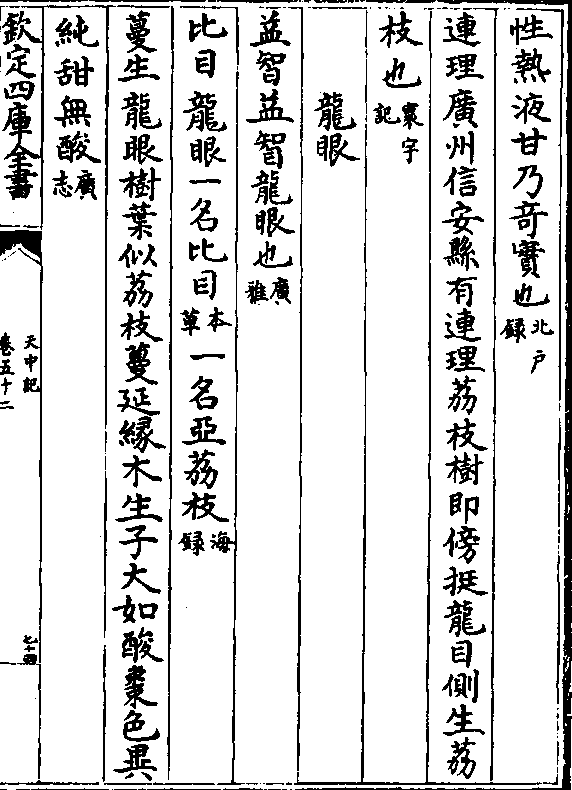 性熱液甘乃奇實也北户録
連理廣州信安縣有連理荔枝樹即傍挺龍目側生荔
枝也寰宇記
龍眼
益智益智龍眼也廣雅
比目龍眼一名比目本草一名亞荔枝海録
蔓生龍眼樹葉似荔枝蔓延縁木生子大如酸棗色異
純甜無酸廣志
欽定四庫全書
天中記
卷五十二
七十四